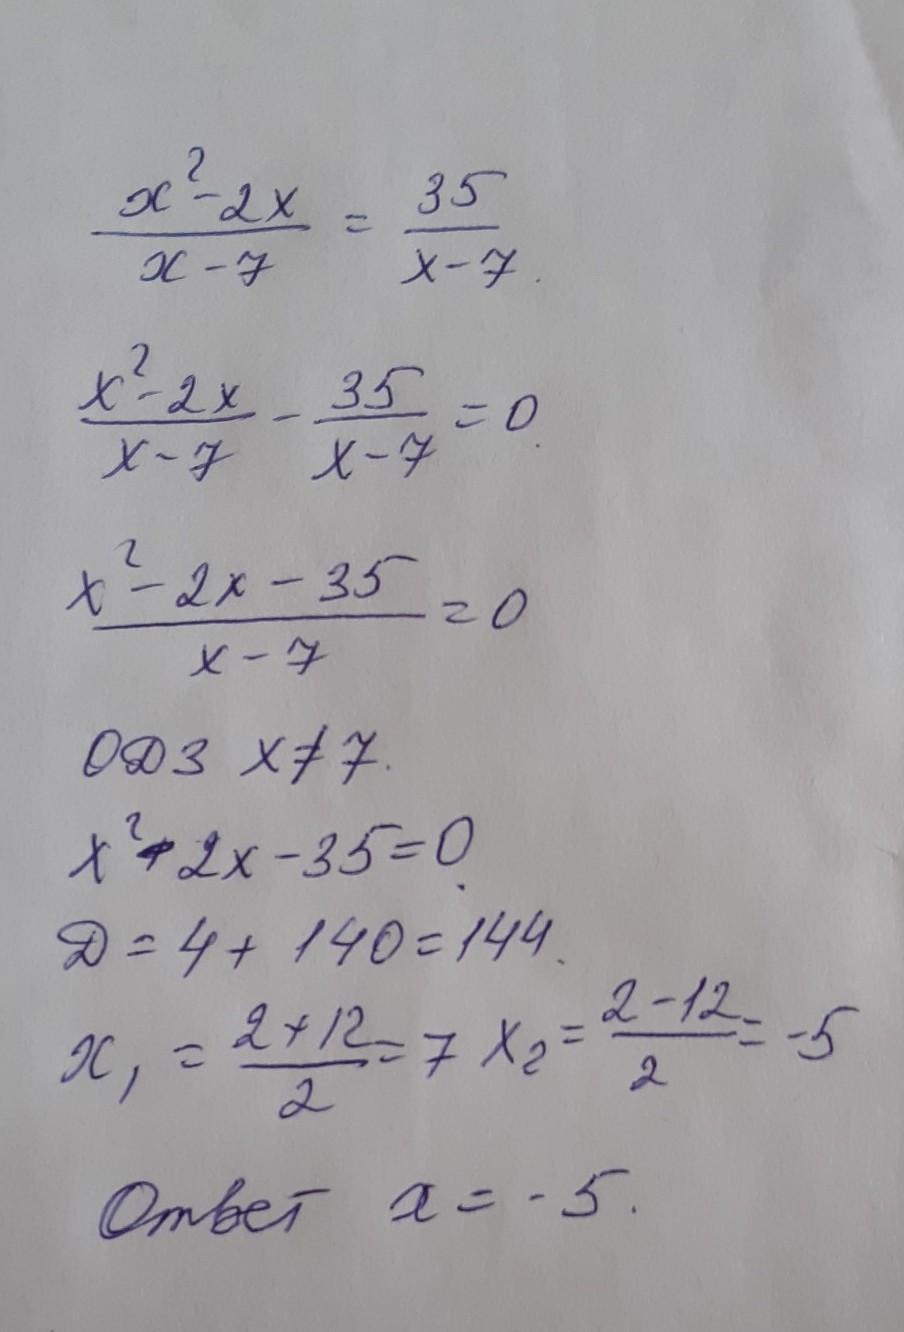 x² - 2x / x - 7 = 35 / x - 7.
x² - 2x / x - 7 - 35 / x - 7 = 0.
x² - 2x - 35 / x - 7 = 0
ОДЗ x ≠ 7.
x² - 2x - 35 = 0.
Д = 4 + 140 = 144.
x₁ = 2 + 12 / 2 = 7 x₂ = 2 - 12 / 2 = -5
Ответ x = -5.